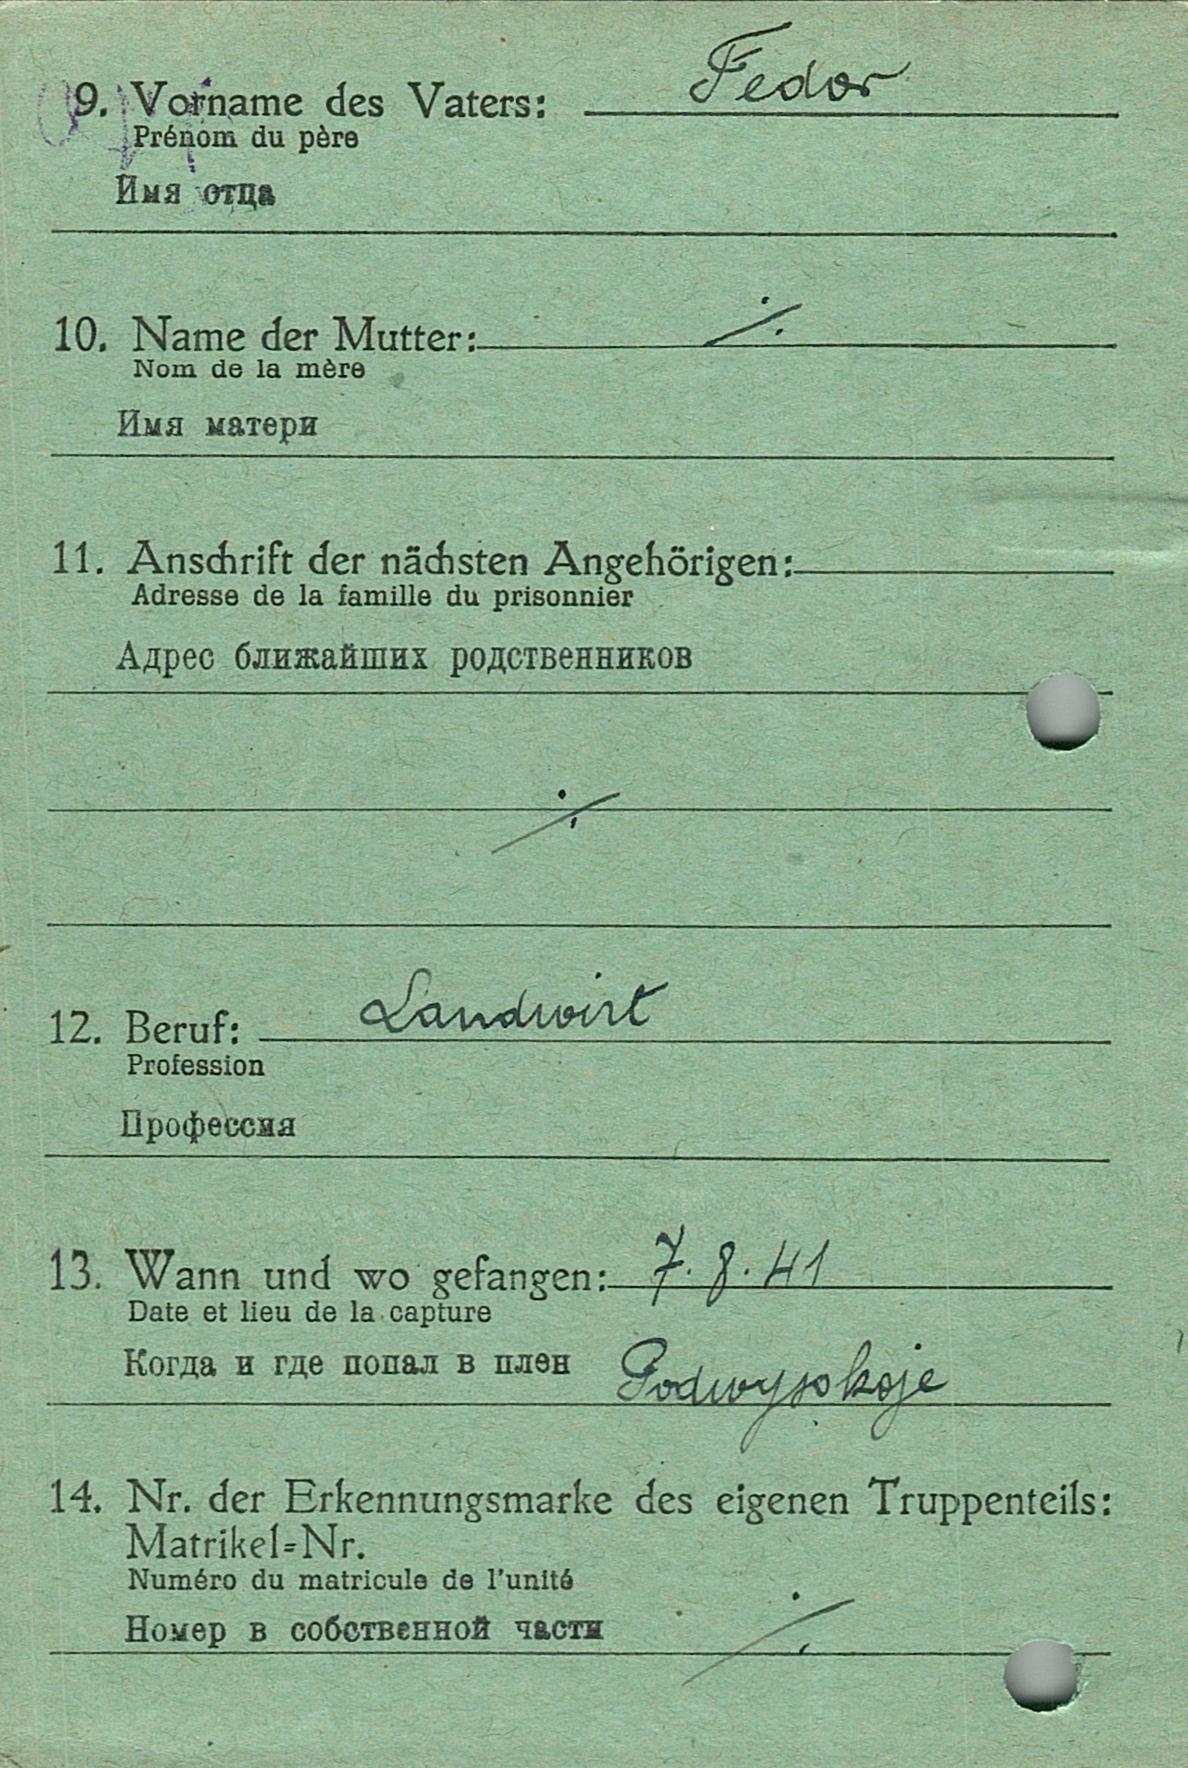 9. Vorname des Vaters: Fedor
Prénom du père
Имя отца
10. Name der Mutter: ./.
Nom de la mère
Имя матери
11. Anschrift der nächsten Angehörigen:
Adresse de la famille du prisonnier
Адрес ближайших родственников
./.
12. Beruf: Landwirt
Profession
Профессия
13. Wann und wo gefangen: 7.8.41
Date et lieu de la capture
Когда и где попал в плен Podwysokoje
14. Nr. der Erkennungsmarke des eigenen Truppenteils:
Matrikel=Nr.
Numéro du matricule de l'unité
Номер в собственной части ./.